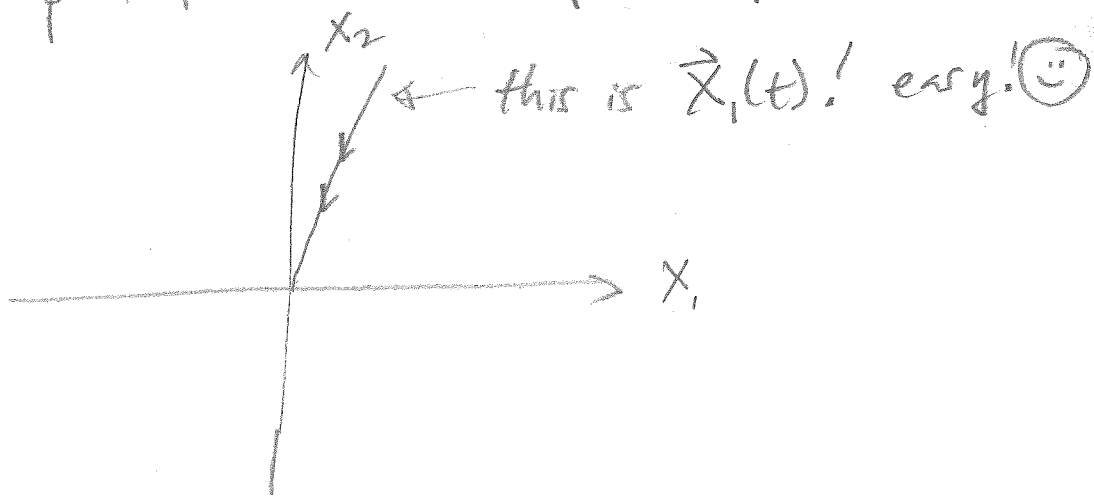 X₂
this is X⃗₁(t)! easy! ☺
X₁